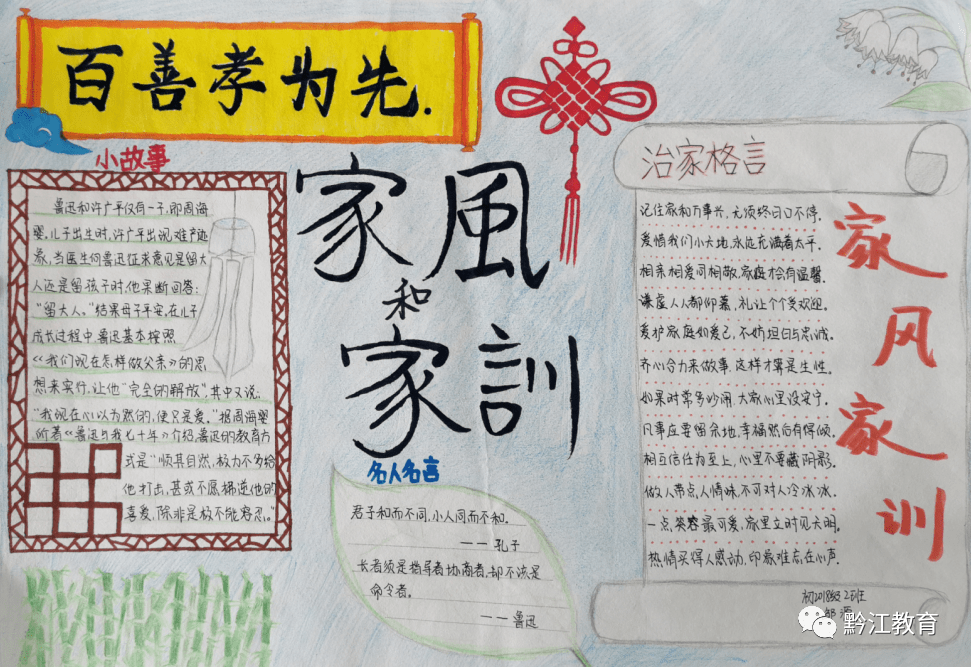 百善孝为先.
小故事
鲁迅和许广平仅有一子,即周海
婴,儿子出生时,许广平出现难产迹
象,当医生向鲁迅征求意见是留大
人还是留孩子时,他果断回答:
“留大人。”结果母子平安,在儿子
成长过程中,鲁迅基本按照
《《我们现在怎样做父亲》的思
想来实行,让他“完全的解放”,其中又说:
“我现在心以为然的,便只是爱。”据周海婴
所著《鲁迅与我七十年》介绍,鲁迅的教育方
式是“顺其自然,极力不多给
他打击,甚或不愿拂逆他的
喜爱,除非是极不能容忍。”
家風
和
家訓
名人名言
君子和而不同,小人同而不和。
——孔子
长者须是指导者协商者,却不该是
命令者。
——鲁迅
治家格言
记住家和万事兴,无须终日口不停.
爱惜我们小天地,永远充满着太平.
相亲相爱可相敬,家庭才会有温馨.
谦虚人人都仰慕,礼让个个受欢迎.
爱护家庭如爱己,不妨坦白与忠诚.
齐心合力来做事,这样才算是生性.
如果时常多吵闹,大家心里没安宁.
凡事应要留余地,幸福然后有得倾.
相互信任为至上,心里不要藏阴影.
做人带点人情味,不可对人冷冰冰.
一点笑容最可爱,家里立时见光明.
热情买得人感动,印象难忘在心声.
家风家训
初2018级32班
黔江教育